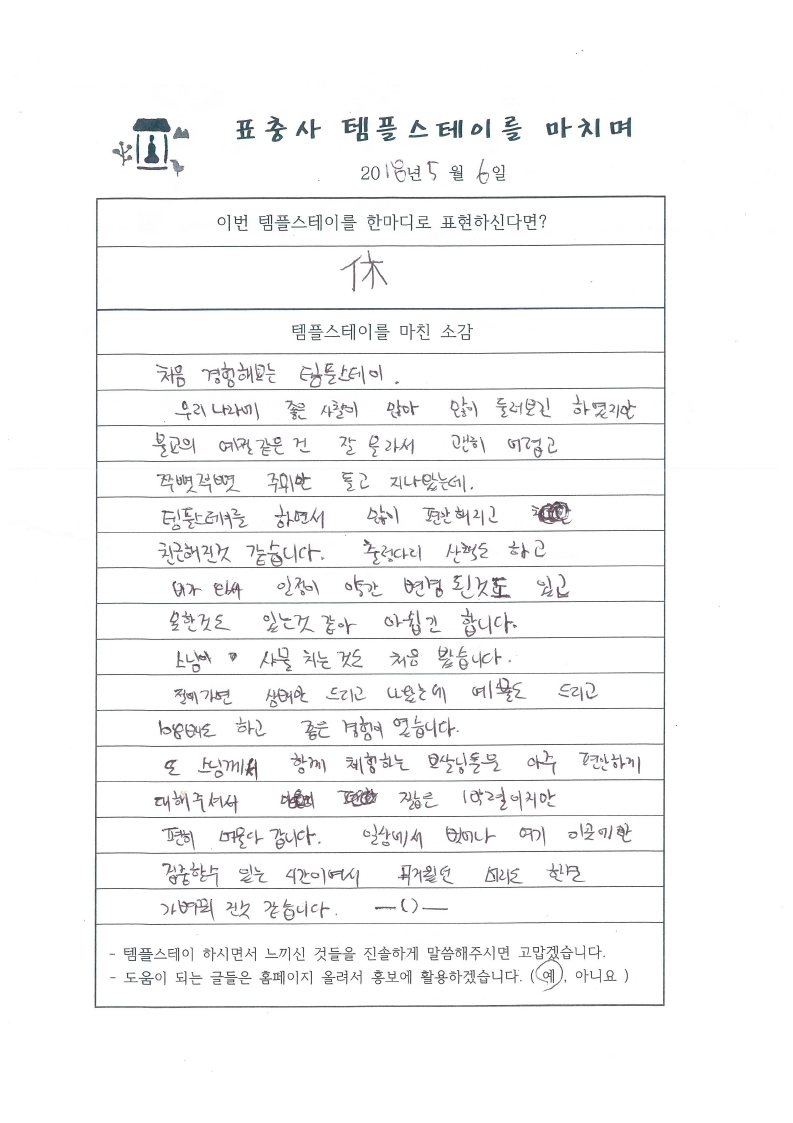 표충사 템플스테이를 마치며
2018년 5월 6일
이번 템플스테이를 한마디로 표현하신다면?
休
템플스테이를 마친 소감
처음 경험해보는 템플스테이.
우리나라에 좋은 사찰이 많아 많이 둘러보긴 하였지만
불교의 예절같은건 잘 몰라서 괜히 어렵고
쭈뼛쭈뼛 주위만 돌고 지나왔는데.
템플스테이를 하면서 많이 편안해지고
친근해진것 같습니다. 출렁다리 산책도 하고
비가 와서 일정이 약간 변경된것도 있고
못한것도 있는것 같아 아쉽긴 합니다.
스님이 사물 치는것도 처음 봤습니다.
절에가면 삼배만 드리고 나왔는데 예불도 드리고
108배도 하고 좋은 경험이 였습니다.
또 스님께서 함께 체험하는 보살님들을 아주 편안하게
대해주셔서 짧은 1박2일이지만
편히 머물다 갑니다. 일상에서 벗어나 여기 이곳에만
집중할수 있는 시간이여서 무거웠던 머리도 한결
가벼워 진것 같습니다. —( )—
- 템플스테이 하시면서 느끼신 것들을 진솔하게 말씀해주시면 고맙겠습니다.
- 도움이 되는 글들은 홈페이지 올려서 홍보에 활용하겠습니다. ( 예 , 아니요 )